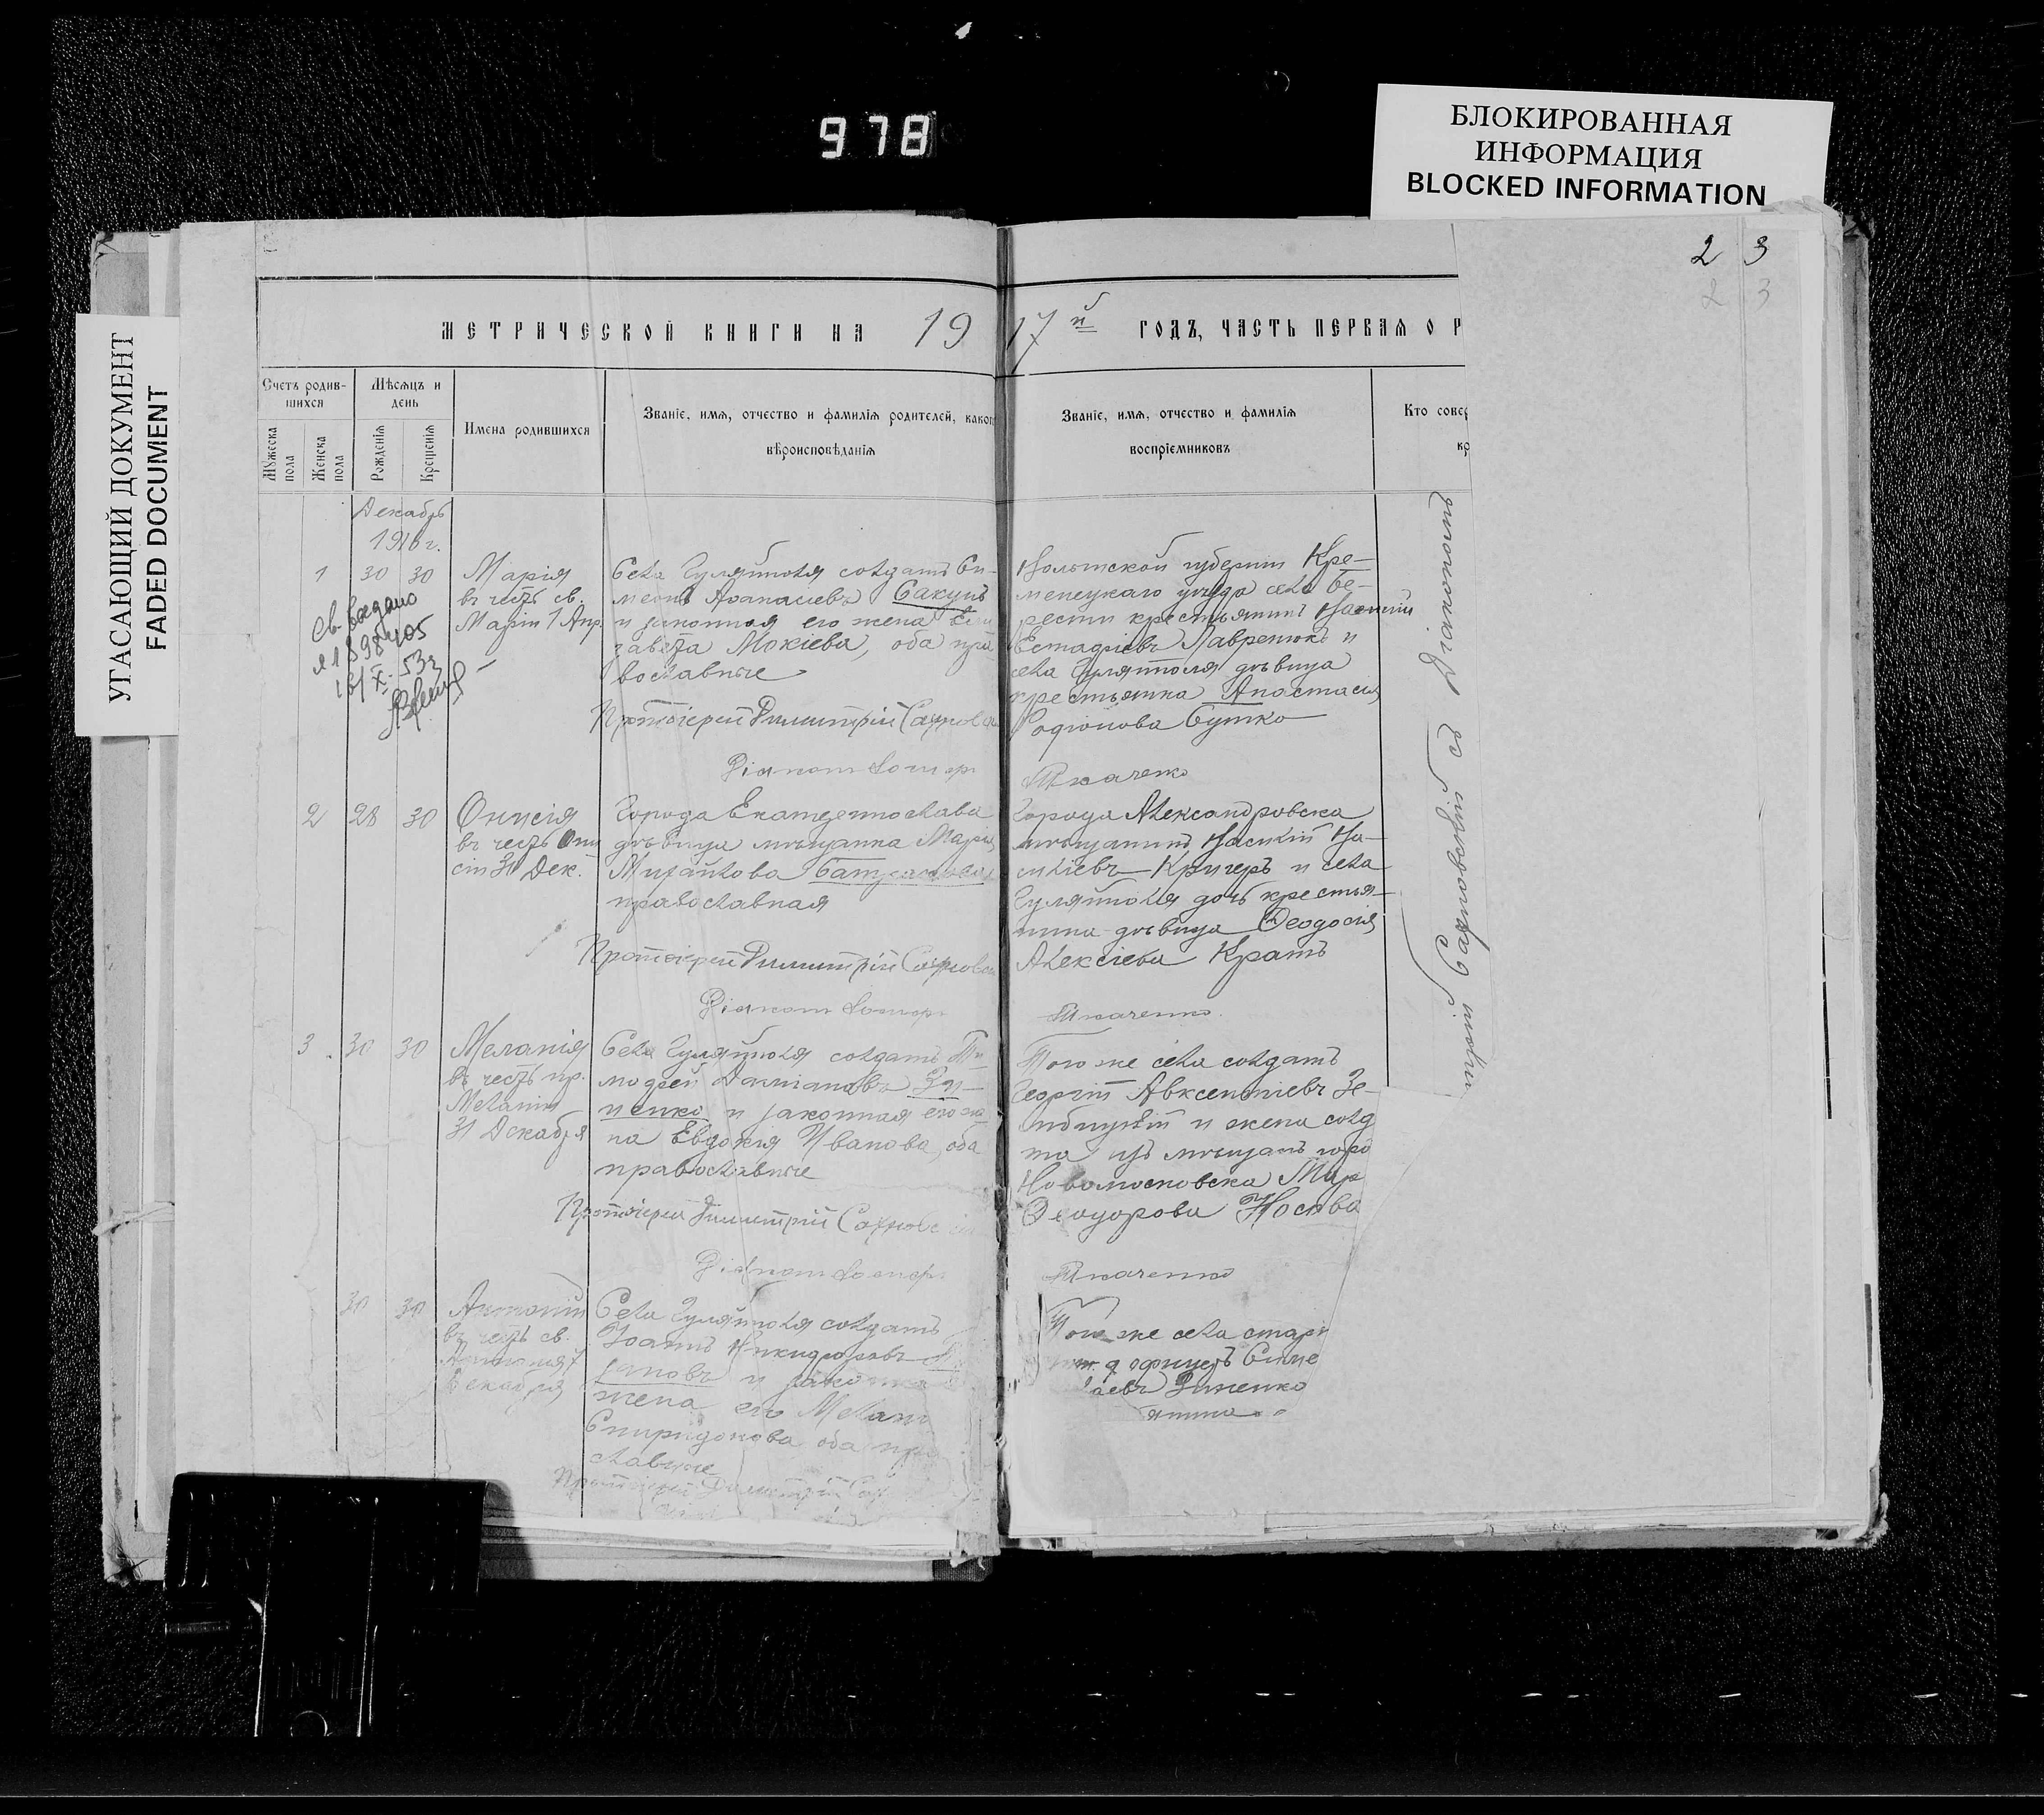 978
БЛОКИРОВАННАЯ
ИНФОРМАЦИЯ
BLOCKED INFORMATION
УГАСАЮЩИЙ ДОКУМЕНТ
FADED DOCUMENT
2 3
2 3
МЕТРИЧЕСКОЙ КНИГИ НА 19
17й ГОДЪ, ЧАСТЬ ПЕРВАЯ О Р
Счетъ родив-
шихся
Мѣсяцъ и
день
Мужеска
пола
Женска
пола
Рожденія
Крещенія
Имена родившихся
Званіе, имя, отчество и фамилія родителей, каког
вѣроисповѣданія
Званіе, имя, отчество и фамилія
воспріемниковъ
Кто совер
ко
Декабрь
1916 г.
1 30 30
Марія
въ честь св.
Маріи 1 Апр.
Св. выдано
16/X-53г
Села Гуляйполя солдатъ Си-
меонъ Аѳанасіевъ Сакунъ
и законная его жена Ели
завета Мокіева, оба пра
вославные
Протоіерей Димитрій Сахновск
Діаконъ
Волынской губерніи Кре-
менецкаго уѣзда села Бе-
рести крестьянинъ
Евстафіевъ Лавренюкъ и
села Гуляйполя дѣвица
крестьянка Анастасія
Родіонова Бутко
Ткаченко
2 28 30
Онисія
въ честь Они
сіи 31 Дек.
Города Екатеринослава
дѣвица мѣщанка Марія
Михайлова
православная
Протоіерей Димитрій Сахновск
Діаконъ
Города Александровска
мѣщанинъ Василій Ва-
силіевъ Кригеръ и села
Гуляйполя дочь крестья-
нина дѣвица Ѳеодосія
Алексіева Кратъ
Ткаченко
3 30 30
Меланія
въ честь пр.
Меланіи
31 Декабря
Села Гуляйполя солдатъ Ти
моѳей Даміановъ Зи-
ненко и законная его же
на Евдокія Иванова, оба
православные
Протоіерей Димитрій Сахновс
Діаконъ
Того же села солдатъ
Георгій Авксентіевъ Зе-
и жена солд
та изъ мѣщанъ горо
Новомосковска Мар
Ѳеодорова Носова
Ткаченко
30 30
Антоній
въ честь св.
Антонія 7
Декабря
Села Гуляйполя солдатъ
Іоаннъ Никифоровъ
и законная
жена его Мелан
Спиридонова оба пра
славные
Протоіерей Димитрій Сах
Того же села стар
офицеръ Симе
аевъ
Сахновскій съ Діакономъ